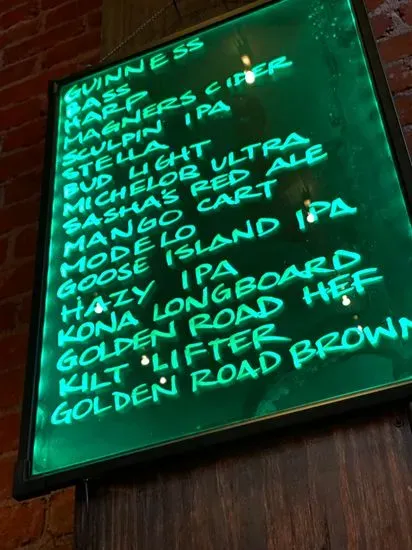 GUINNESS
BASS
HARP
MAGNERS CIDER
SCULPIN IPA
STELLA
BUD LIGHT
MICHELOB ULTRA
SASHA'S RED ALE
MANGO CART
MODELO
GOOSE ISLAND IPA
HAZY IPA
KONA LONGBOARD
GOLDEN ROAD HEF
KILT LIFTER
GOLDEN ROAD BROWN